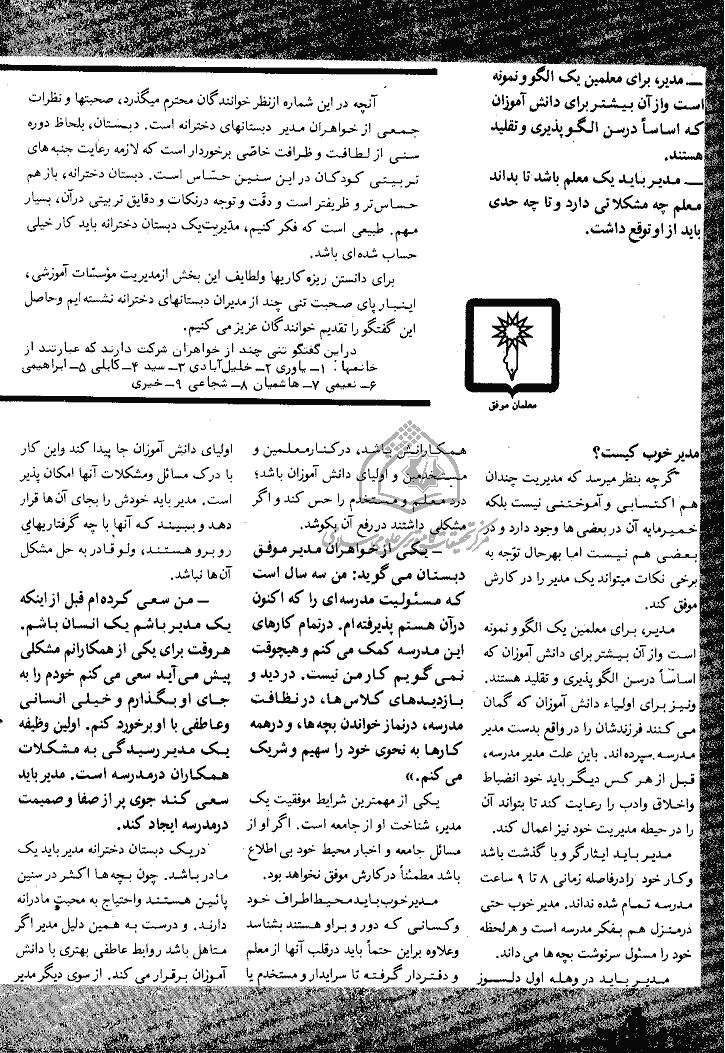 ــ مدیر، برای معلمین یک الگو و نمونه
است و از آن بیشتر برای دانش آموزان
که اساساً درسن الگو پذیری و تقلید
هستند.
ــ مدیر باید یک معلم باشد تا بداند
معلم چه مشکلاتی دارد و تا چه حدی
باید از او توقع داشت.
آنچه در این شماره ازنظر خوانندگان محترم میگذرد، صحبتها و نظرات
جمعی از خواهران مدیر دبستانهای دخترانه است. دبستان، بلحاظ دوره
سنی از لطافت و ظرافت خاصی برخوردار است که لازمه رعایت جنبه های
تربیتی کودکان در این سنین حسّاس است. دبستان دخترانه، باز هم
حساس تر و ظریفتر است و دقّت و توجه درنکات و دقایق تربیتی درآن، بسیار
مهم. طبیعی است که فکر کنیم، مدّیریت یک دبستان دخترانه باید کار خیلی
حساب شده ای باشد.
برای دانستن ریزه کاریها ولطایف این بخش ازمدیریت مؤسسّات آموزشی،
اینبار پای صحبت تنی چند از مدیران دبستانهای دخترانه نشسته ایم وحاصل
این گفتگو را تقدیم خوانندگان عزیز می کنیم.
دراین گفتگو تنی چند از خواهران شرکت دارند که عبارتند از
خانمها: ۱ــ یاوری ۲ــ خلیل آبادی ۳ــ سید ۴ــ کابلی ۵ــ ابراهیمی
۶ــ نعیمی ۷ــ هاشمیان ۸ــ شجاعی ۹ــ خیری
معلمان موفق
مدیر خوب کیست؟
گرچه بنظر میرسد که مدیریت چندان
هم اکتسابی و آموختنی نیست بلکه
خمیرمایه آن در بعضی ها وجود دارد و در
بعضی هم نیست اما بهرحال توّجه به
برخی نکات میتواند یک مدیر را در کارش
موفق کند.
مدیر، برای معلمین یک الگو و نمونه
است واز آن بیشتر برای دانش آموزان که
اساساً درسن الگو پذیری و تقلید هستند.
ونیز برای اولیاء دانش آموزان که گمان
می کنند فرزندشان را در واقع بدست مدیر
مدرسه سپرده اند. باین علت مدیر مدرسه،
قبل از هر کس دیگر باید خود انضباط
واخلاق وادب را رعایت کند تا بتواند آن
را در حیطه مدیریت خود نیز اعمال کند.
مدیر باید ایثارگر و با گذشت باشد
وکار خود را درفاصله زمانی ۸ تا ۹ ساعت
مدرسه تمام شده نداند. مدیر خوب حتی
درمنزل هم بفکر مدرسه است و هرلحظه
خود را مسئول سرنوشت بچه ها می داند.
مدیر باید در وهله اول دلسوز
همکارانش باشد، درکنار معلمین و
مستخدمین و اولیای دانش آموزان باشد؛
درد معلم و مستخدم را حس کند و اگر
مشکلی داشتند در رفع آن بکوشد.
ــ یکی از خواهران مدیر موفق
دبستان می گوید: من سه سال است
که مسئولیت مدرسه ای را که اکنون
درآن هستم پذیرفته ام. درتمام کارهای
این مدرسه کمک می کنم و هیچوقت
نمی گویم کار من نیست. در دید و
بازدیدهای کلاس ها، در نظافت
مدرسه، درنماز خواندن بچه ها، و درهمه
کارها به نحوی خود را سهیم و شریک
می کنم.»
یکی از مهمترین شرایط موفقیت یک
مدیر، شناخت او از جامعه است. اگر او از
مسائل جامعه و اخبار محیط خود بی اطلاع
باشد مطمئناً درکارش موفق نخواهد بود.
مدیر خوب باید محیط اطراف خود
وکسانی که دور و بر او هستند بشناسد
وعلاوه براین حتماً باید درقلب آنها از معلم
و دفتردار گرفته تا سرایدار و مستخدم یا
اولیای دانش آموزان جا پیدا کند واین کار
با درک مسائل ومشکلات آنها امکان پذیر
است. مدیر باید خودش را بجای آن ها قرار
دهد و ببیند که آنها با چه گرفتاریهایی
روبرو هستند، ولو قادر به حل مشکل
آن ها نباشد.
ــ من سعی کرده ام قبل از اینکه
یک مدیر باشم یک انسان باشم.
هروقت برای یکی از همکارانم مشکلی
پیش می آید سعی می کنم خودم را به
جای او بگذارم و خیلی انسانی
وعاطفی با او برخورد کنم. اولین وظیفه
یک مدیر رسیدگی به مشکلات
همکاران درمدرسه است. مدیر باید
سعی کند جوی پر از صفا و صمیمت
درمدرسه ایجاد کند.
دریک دبستان دخترانه مدیر باید یک
مادر باشد. چون بچه ها اکثر در سنین
پائین هستند واحتیاج به محبت مادرانه
دارند. و درست به همین دلیل مدیر اگر
متاهل باشد روابط عاطفی بهتری با دانش
آموزان برقرار می کند. از سوی دیگر مدیر